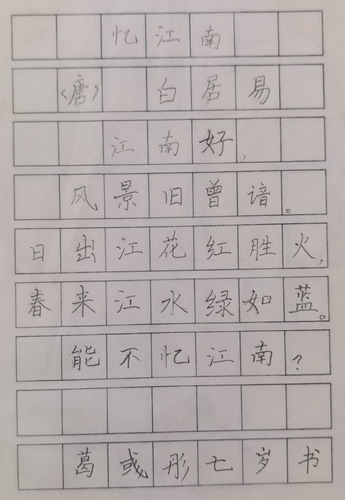 忆江南
〈唐〉 白居易
江南好,
风景旧曾谙。
日出江花红胜火,
春来江水绿如蓝。
能不忆江南?
葛彧彤七岁书